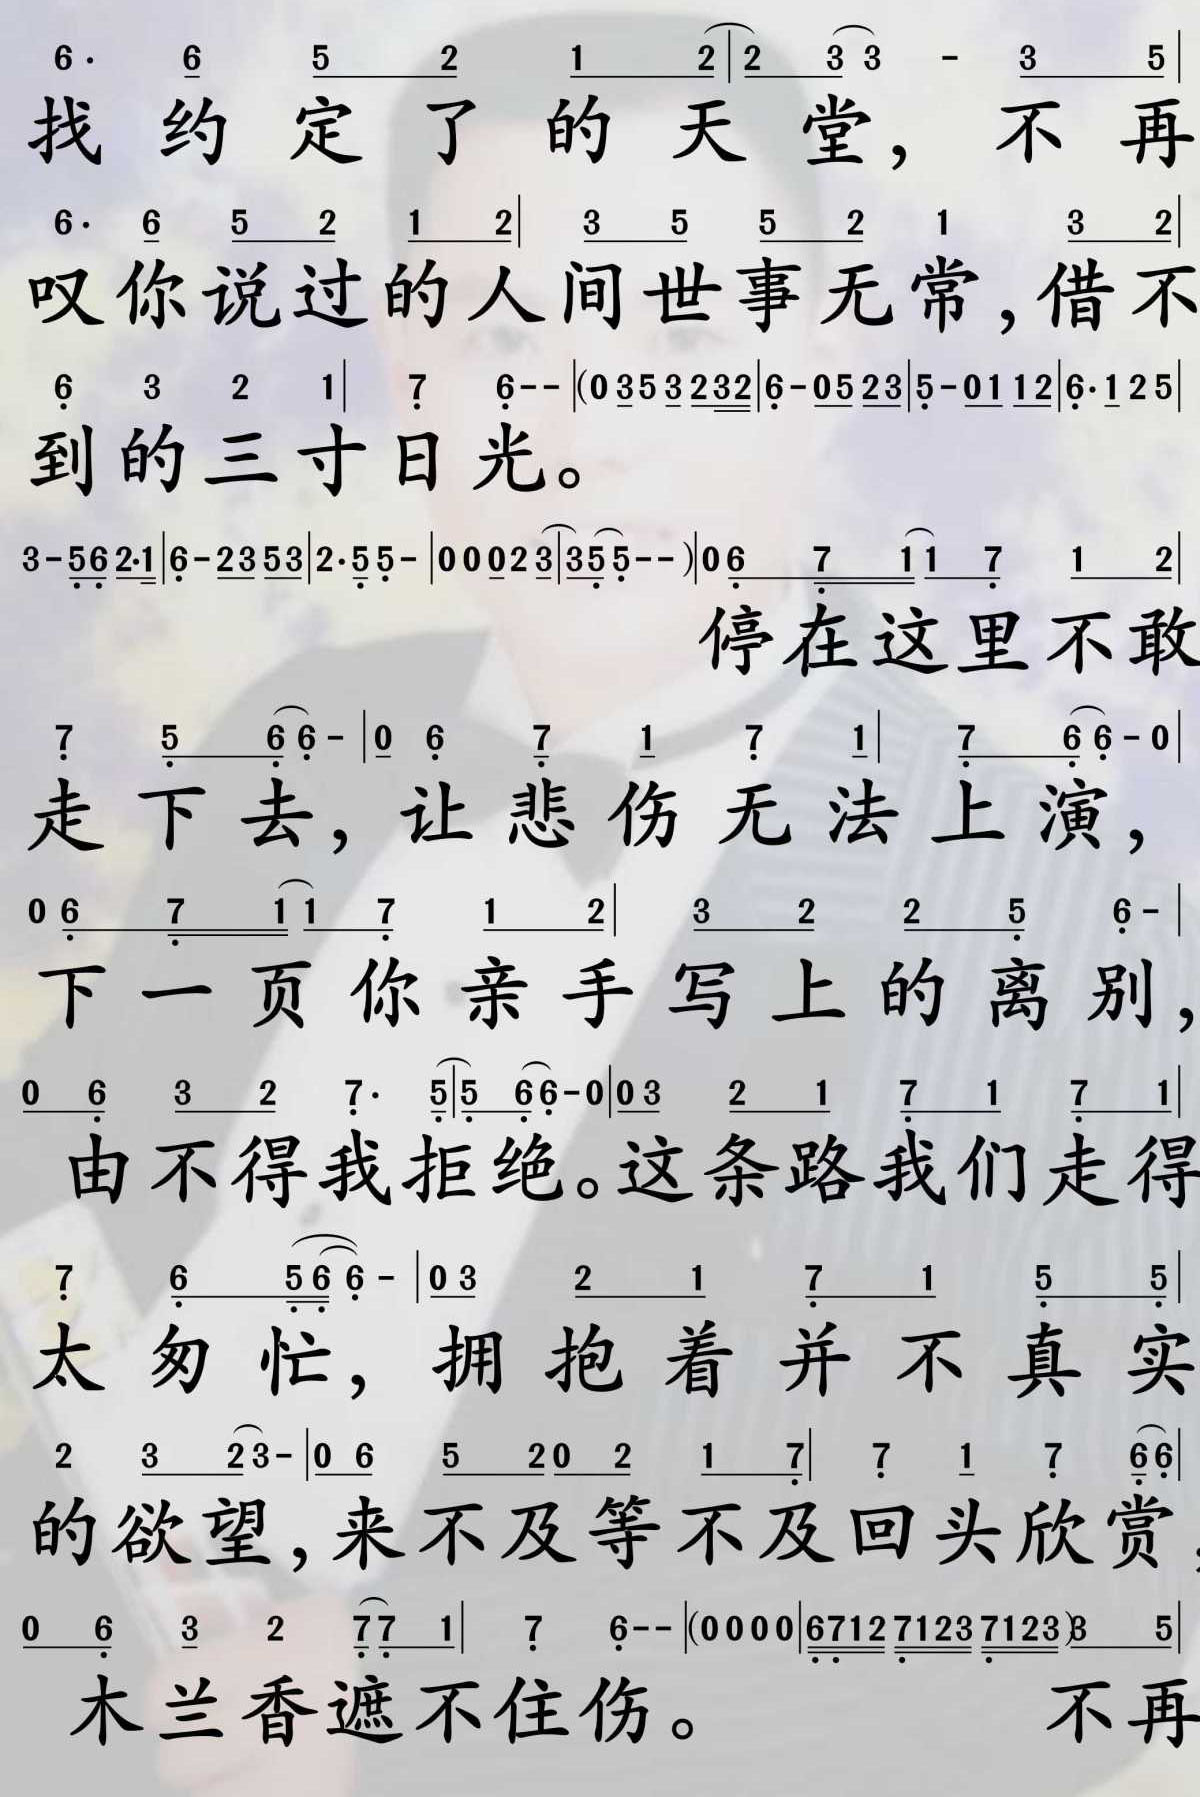 6· 6 5 2 1 2|2 3 3 - 3 5|
找约定了的天堂，不再
6· 6 5 2 1 2| 3 5 5 2 1 3 2|
叹你说过的人间世事无常，借不
6 3 2 1| 7 6--|(0 35 3 232|6-05 23|5-01 12|6·1 25|
到的三寸日光。
3-56 2·1|6-23 53|2·5 5-|0 0 0 2 3|35 5--)|0 6 7 1 1 7 1 2|
停在这里不敢
7 5 6 6-|0 6 7 1 7 1| 7 6 6-0|
走下去，让悲伤无法上演，
0 6 7 1 1 7 1 2| 3 2 2 5 6-|
下一页你亲手写上的离别，
0 6 3 2 7· 5|5 6 6-0|0 3 2 1 7 1 7 1|
由不得我拒绝。这条路我们走得
7 6 5 6 6 -|0 3 2 1 7 1 5 5|
太匆忙，拥抱着并不真实
2 3 2 3-|0 6 5 2 0 2 1 7| 7 1 7 6 6|
的欲望，来不及等不及回头欣赏，
0 6 3 2 7 7 1| 7 6--|(0 0 0 0|6712 7123 7123)3 5|
木兰香遮不住伤。 不再